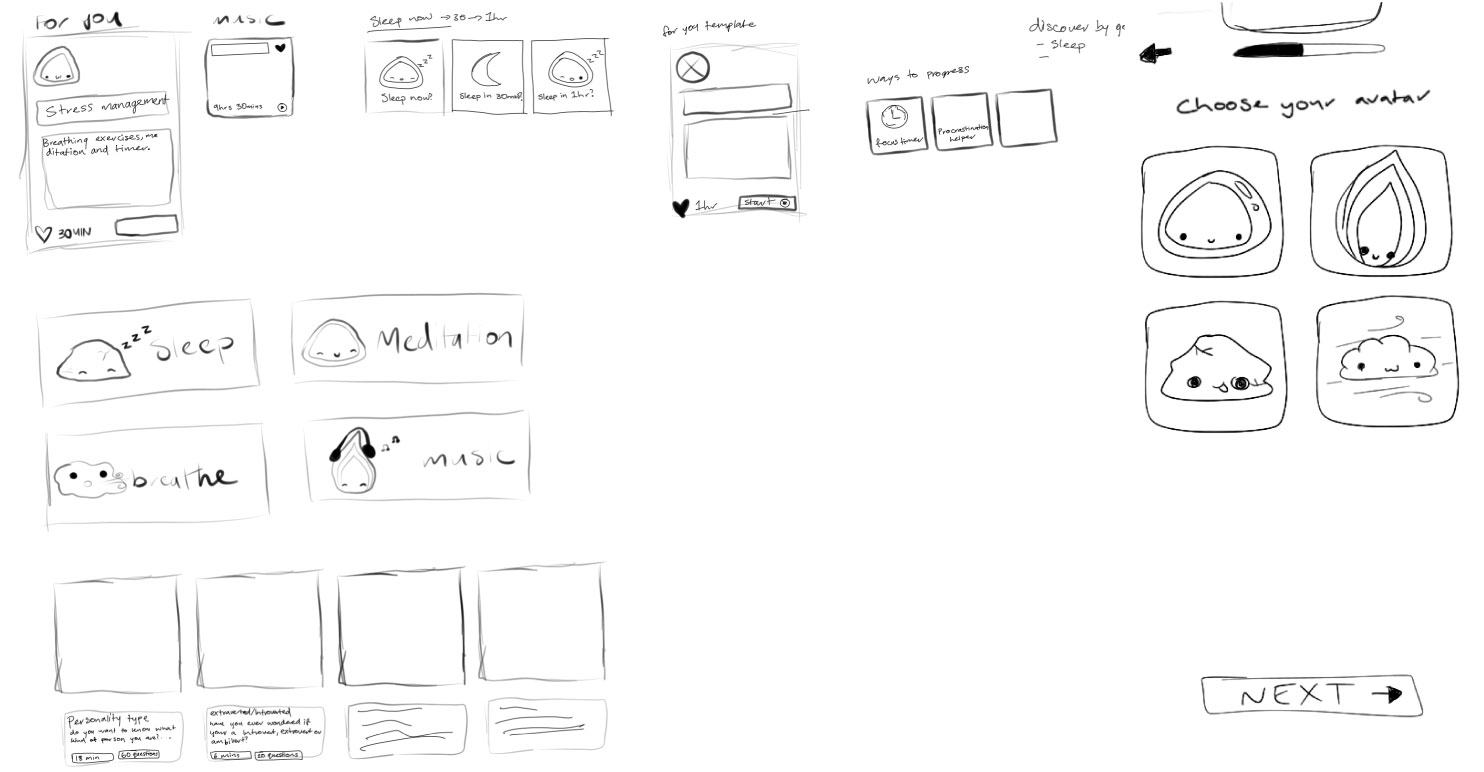 For you
Stress management
Breathing exercises, me
ditation and timer.
30MIN
music
9hrs 30mins
Sleep now → 30 → 1hr
zzz
Sleep now?
Sleep in 30min?
zzz
Sleep in 1hr?
for you template
1hr
Start
ways to progress
focus timer
Procrastination
helper
discover by ge
- Sleep
-
Choose your avatar
NEXT →
zzz
Sleep
Meditation
breathe
music
Personality type
do you want to know what
kind of person you are?...
18 min
60 questions
extraverted/Introverted
have you ever wondered if
your a introvert, extrovert or
ambivert?
6 mins
20 questions